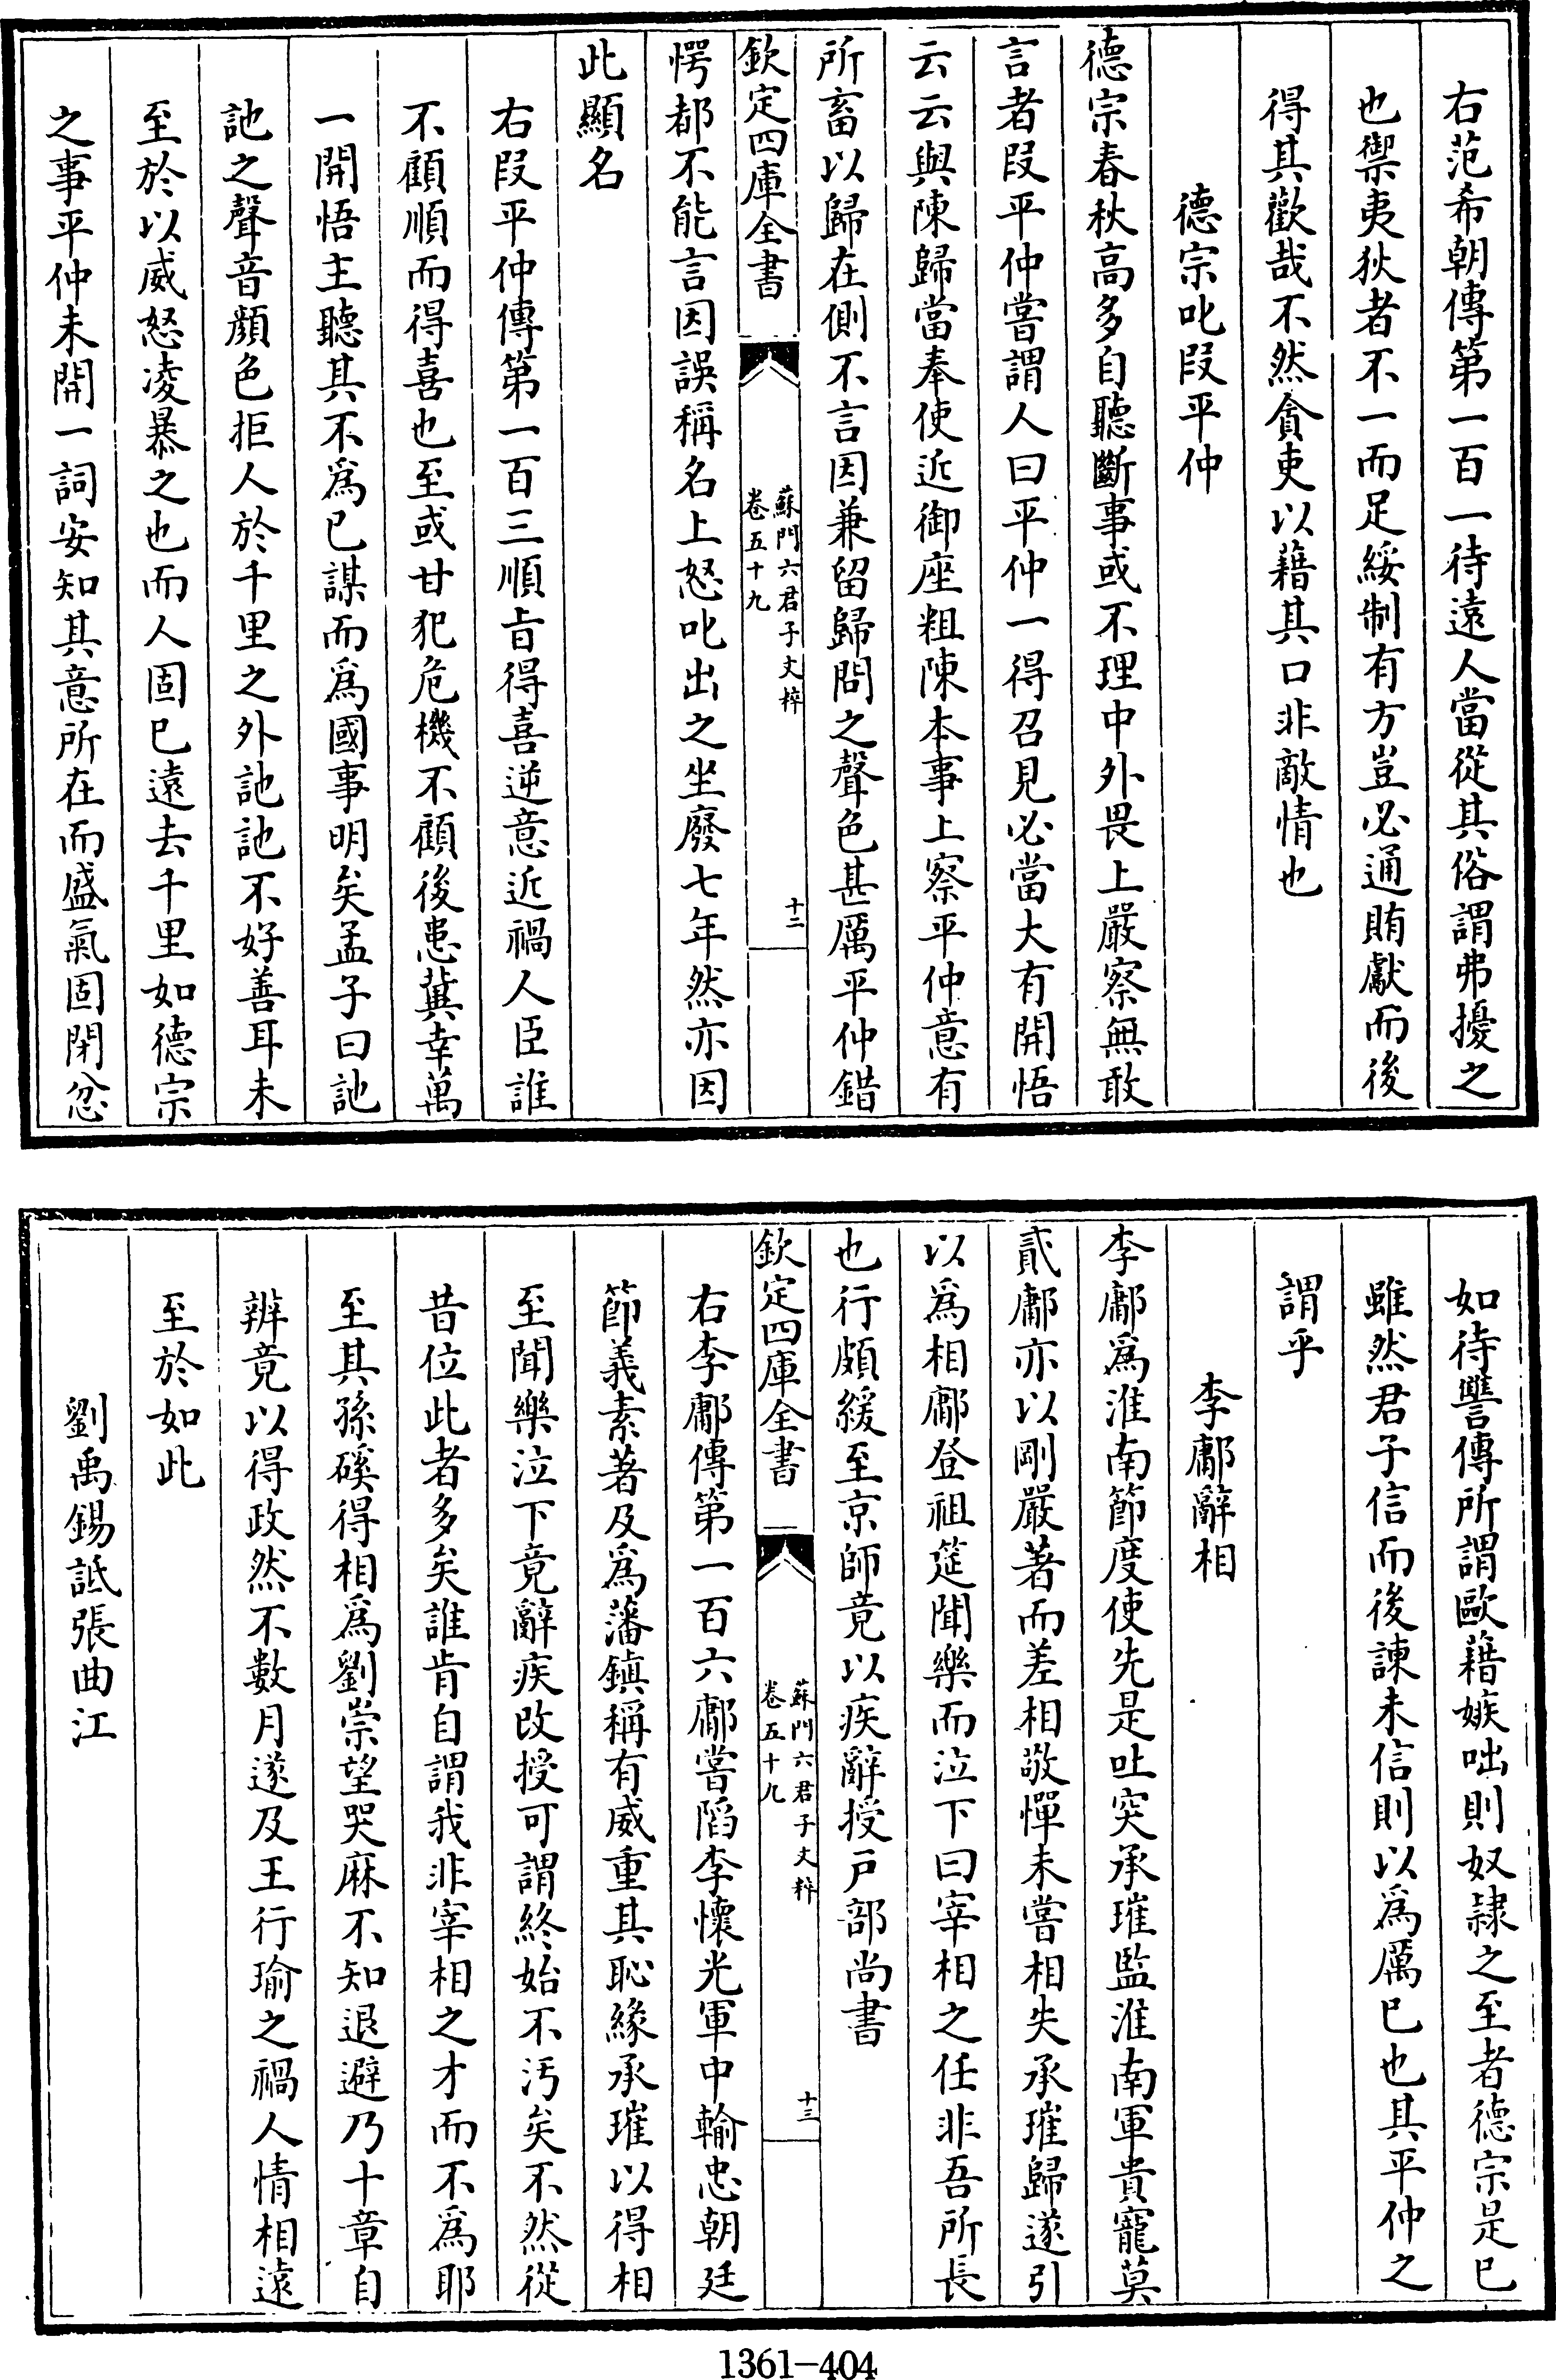 右范希朝傳第一百一待遠人當從其俗謂弗擾之
也禦夷狄者不一而足綏制有方豈必通賄獻而後
得其歡哉不然貪吏以藉其口非敵情也
德宗叱段平仲
德宗春秋高多自聽斷事或不理中外畏上嚴察無敢
言者段平仲嘗謂人曰平仲一得召見必當大有開悟
云云與陳歸當奉使近御座粗陳本事上察平仲意有
所畜以歸在側不言因兼留歸問之聲色甚厲平仲錯
欽定四庫全書
蘇門六君子文粹
卷五十九
十二
愕都不能言因誤稱名上怒叱出之坐廢七年然亦因
此顯名
右段平仲傳第一百三順旨得喜逆意近禍人臣誰
不顧順而得喜也至或甘犯危機不顧後患冀幸萬
一開悟主聽其不爲已謀而爲國事明矣孟子曰訑
訑之聲音顔色拒人於千里之外訑訑不好善耳未
至於以威怒凌暴之也而人固已遠去千里如德宗
之事平仲未開一詞安知其意所在而盛氣固閉忿
如待讐傳所謂歐藉嫉咄則奴隷之至者德宗是已
雖然君子信而後諫未信則以爲厲已也其平仲之
謂乎
李鄘辭相
李鄘爲淮南節度使先是吐突承璀監淮南軍貴寵莫
貳鄘亦以剛嚴著而差相敬憚未嘗相失承璀歸遂引
以爲相鄘登祖筵聞樂而泣下曰宰相之任非吾所長
也行頗緩至京師竟以疾辭授戸部尚書
欽定四庫全書
蘇門六君子文粹
卷五十九
十三
右李鄘傳第一百六鄘嘗䧟李懷光軍中輸忠朝廷
節義素著及爲藩鎮稱有威重其恥緣承璀以得相
至聞樂泣下竟辭疾改授可謂終始不汚矣不然從
昔位此者多矣誰肯自謂我非宰相之才而不爲耶
至其孫磎得相爲劉崇望哭麻不知退避乃十章自
辨竟以得政然不數月遂及王行瑜之禍人情相遠
至於如此
劉禹錫詆張曲江
1361-404